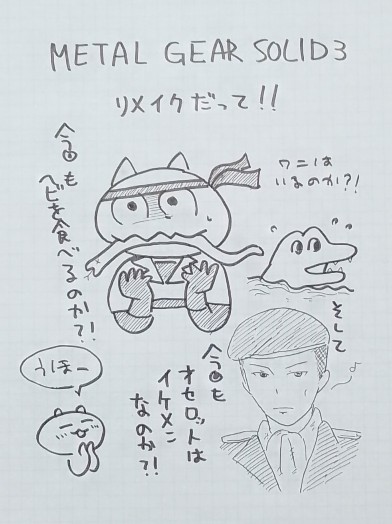 METAL GEAR SOLID3
リメイクだって!!
今回も
ヘビを食べるのか?!
ワニは
いるのか?!
そして
今回も
オセロットは
イケメン
なのか?!
うほー
♪